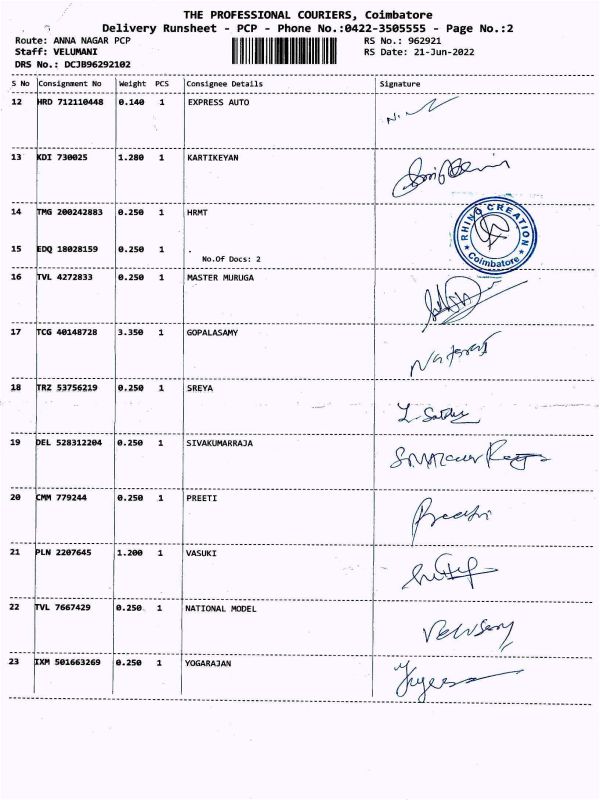 THE PROFESSIONAL COURIERS, Coimbatore
Delivery Runsheet - PCP - Phone No.:0422-3505555 - Page No.:2
Route: ANNA NAGAR PCP RS No.: 962921
Staff: VELUMANI RS Date: 21-Jun-2022
DRS No.: DCJB96292102
S No Consignment No Weight PCS Consignee Details Signature
12 HRD 712110448 0.140 1 EXPRESS AUTO
13 KDI 730025 1.280 1 KARTIKEYAN
14 TMG 200242883 0.250 1 HRMT
RHINO CREATION
★ Coimbatore ★
15 EDQ 18028159 0.250 1 .
No.Of Docs: 2
16 TVL 4272833 0.250 1 MASTER MURUGA
17 TCG 40148728 3.350 1 GOPALASAMY
18 TRZ 53756219 0.250 1 SREYA
19 DEL 528312204 0.250 1 SIVAKUMARRAJA
20 CMM 779244 0.250 1 PREETI Preethi
21 PLN 2207645 1.200 1 VASUKI
22 TVL 7667429 0.250 1 NATIONAL MODEL
23 IXM 501663269 0.250 1 YOGARAJAN